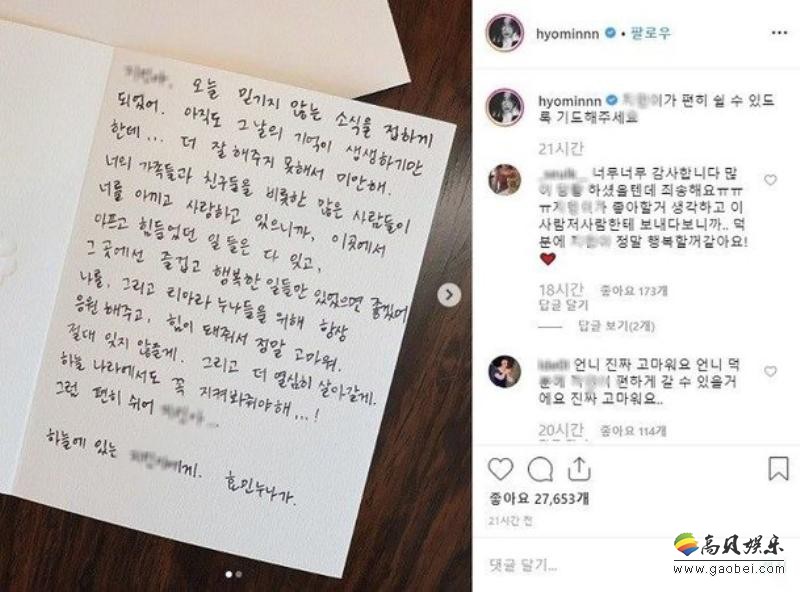 오늘 믿기지 않는 소식을 접하게
되었어. 아직도 그날의 기억이 생생하기만
한데... 더 잘해주지 못해서 미안해.
너의 가족들과 친구들을 비롯한 많은 사람들이
너를 아끼고 사랑하고 있으니까, 이곳에서
아프고 힘들었던 일들은 다 잊고,
그 곳에선 즐겁고 행복한 일들만 있었으면 좋겠어
나를, 그리고 티아라 누나들을 위해 항상
응원해주고, 힘이 돼줘서 정말 고마워.
절대 잊지 않을게. 그리고 더 열심히 살아갈게.
하늘 나라에서도 꼭 지켜봐줘야해...!
그럼 편히 쉬어
하늘에 있는 에게. 효민누나가.
hyominnn • 팔로우
hyominnn 가 편히 쉴 수 있도
록 기도해주세요
21시간
너무너무 감사합니다 많
이 하셨을텐데 죄송해요ㅠㅠ
ㅠ 좋아할거 생각하고 이
사람저사람한테 보내다보니까.. 덕
분에 정말 행복할꺼같아요!
18시간 좋아요 173개
답글 달기
답글 보기(2개)
언니 진짜 고마워요 언니 덕
분에 이 편하게 갈 수 있을거
에요 진짜 고마워요..
20시간 좋아요 114개
좋아요 27,653개
21시간 전
댓글 달기...
高贝娱乐
www.gaobei.com